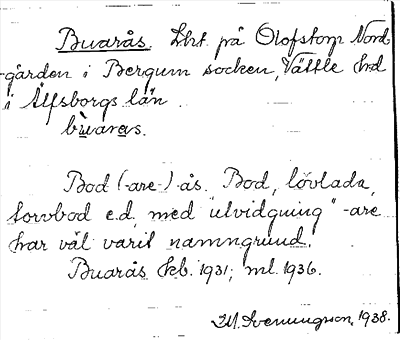 Buarås. Lht på Olofstorp Nord-
gården i Bergum socken, Vättle hd
i Älfsborgs län.
bùaras.
Bod (-are-) ås. Bod, lövlada,
torvbod e.d. med "utvidgning" -are
har väl varit namngrund.
Buarås kb. 1931; ml. 1936.
1938.